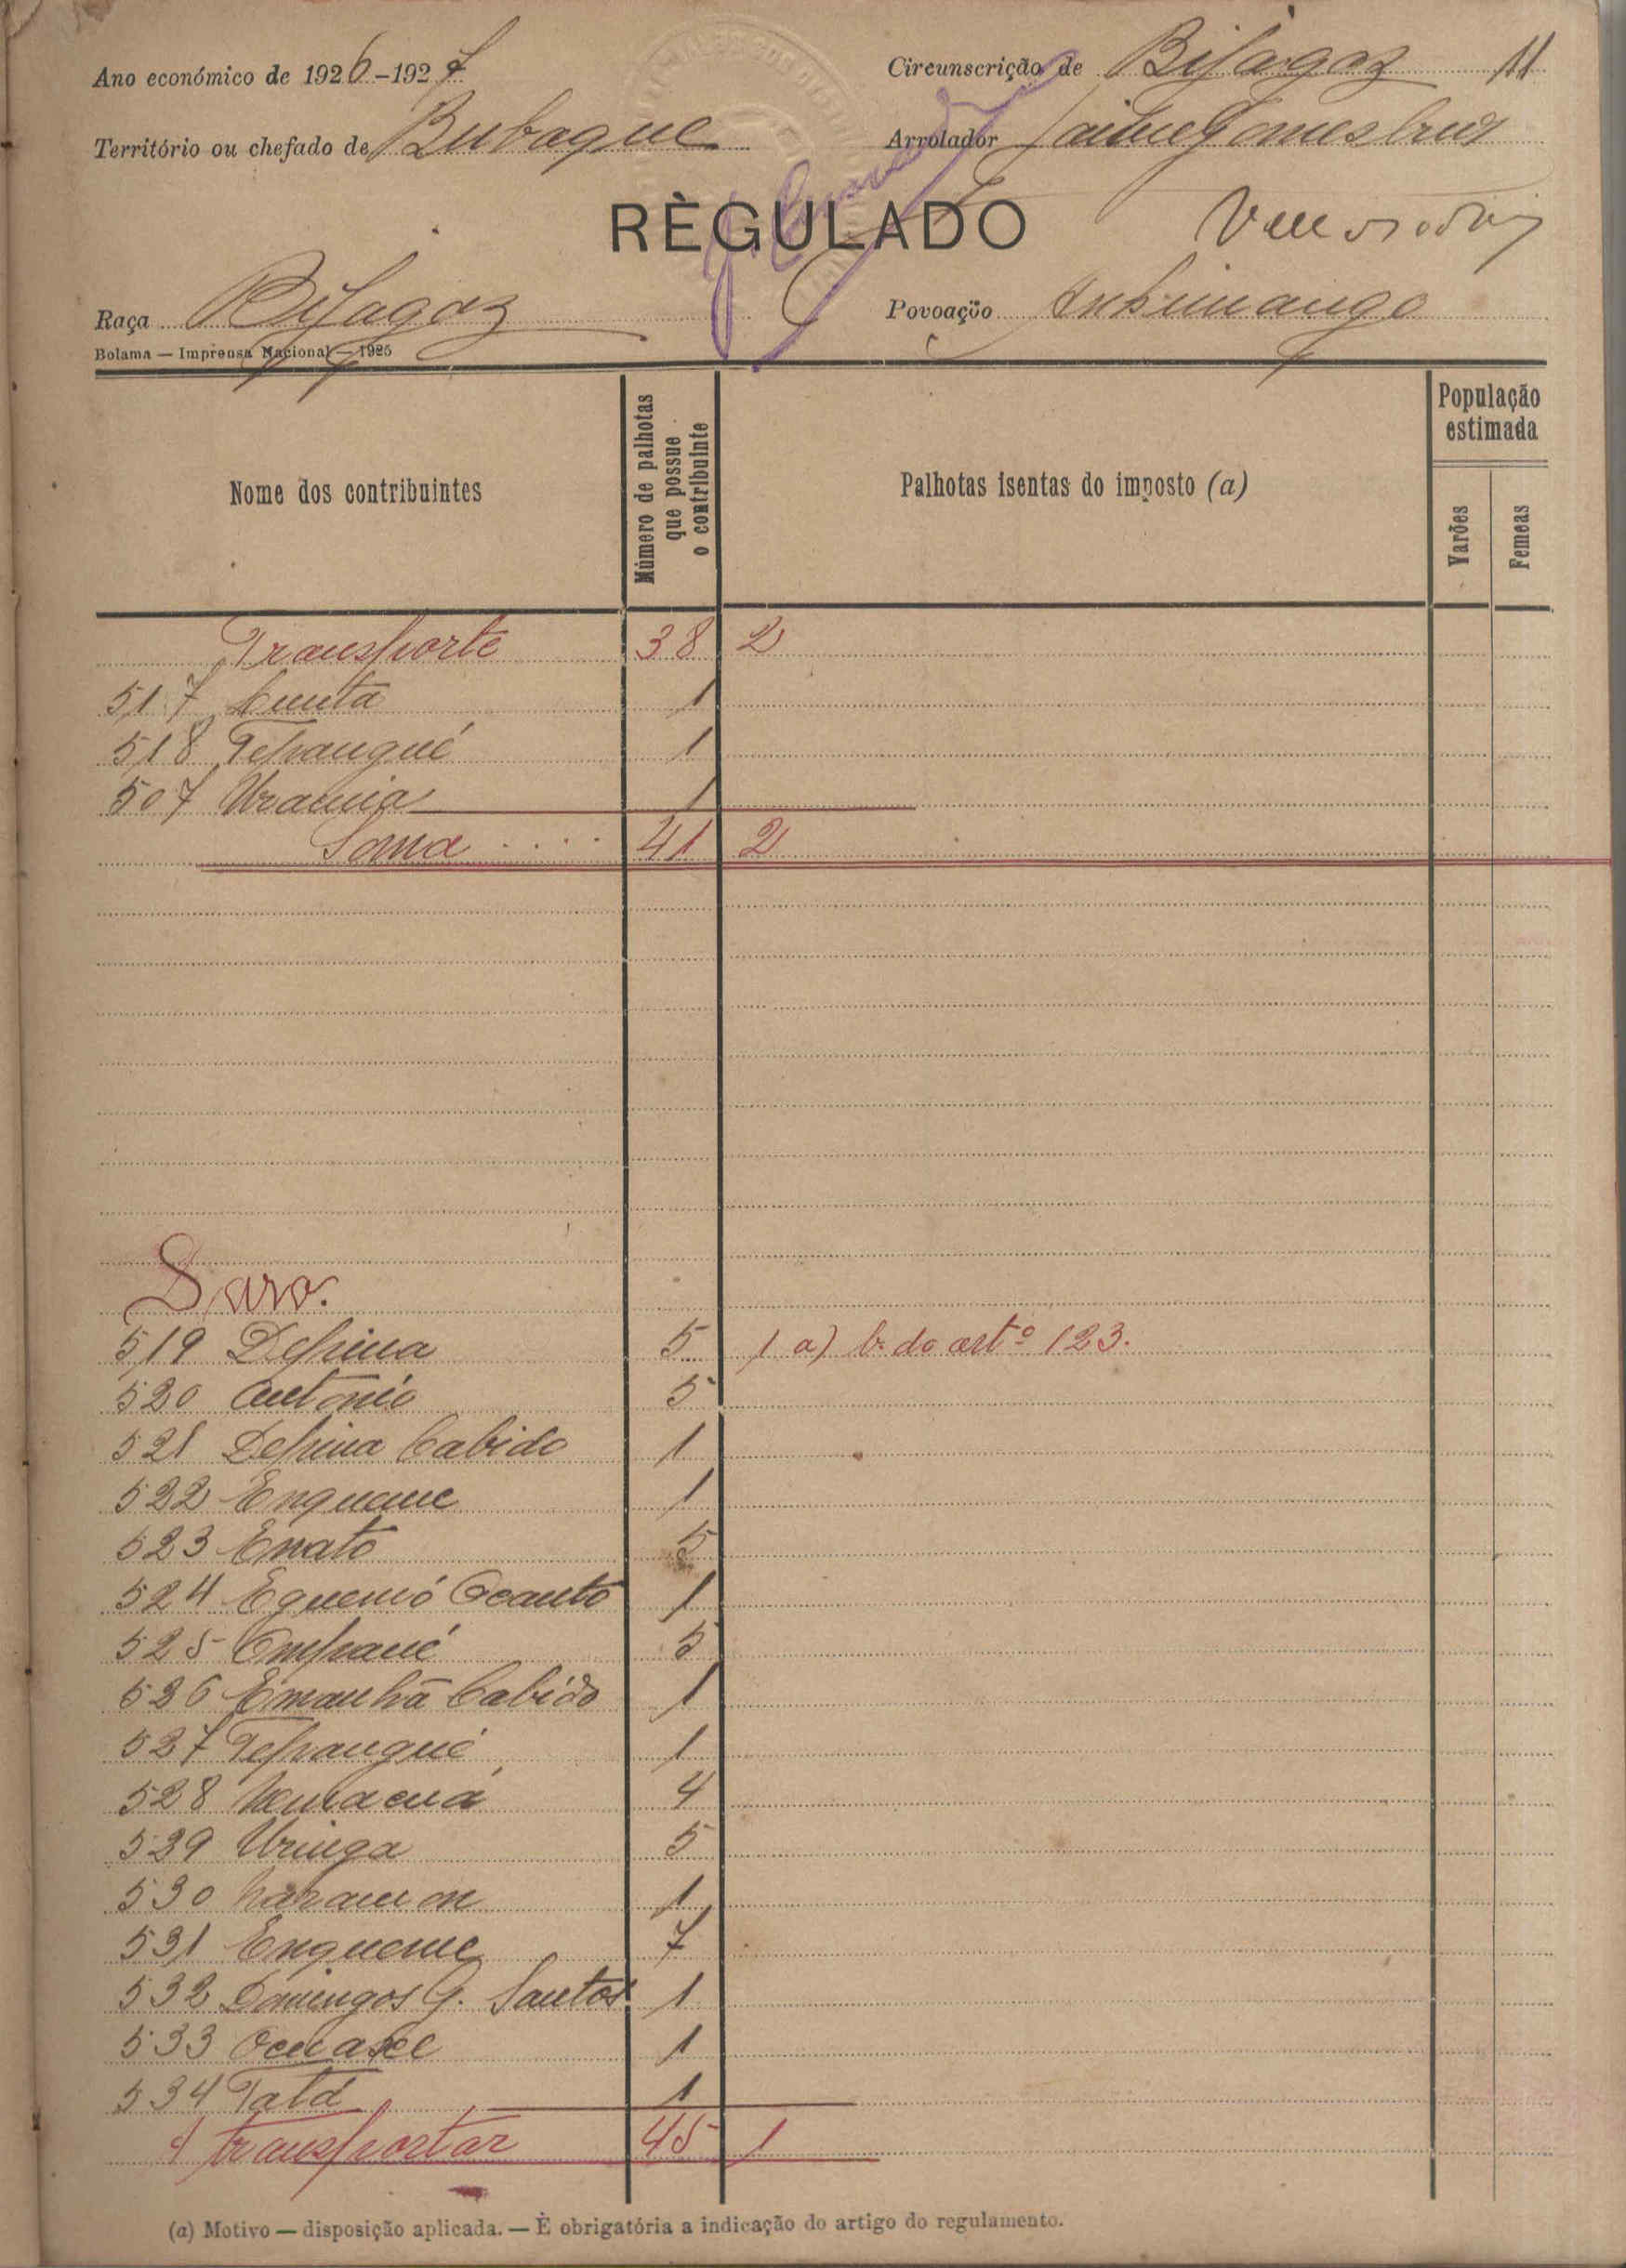 Ano económico de 1926-1927
Circunscrição de Bijagoz 11
Território ou chefado de Bubaque
Arrolador Jaime Gomes
RÈGULADO
Raça Bijagoz
Povoação
Bolama — Imprensa Nacional — 1925
Nome dos contribuintes
Número de palhotas que possue o contribuinte
Palhotas isentas do imposto (a)
População estimada
Varões
Femeas
Transporte 38 2
517 Cunta 1
518 Tepangué 1
507 Urania 1
Soma .... 41 2
519 Depina 5 1 a) b. do artº 123.
520 Antonio 5
521 Depina Cabido 1
522 Enqueme 1
523 Enato 5
524 1
525 Empané 5
526 Emanhã Cabido 1
527 Tepangué 1
528 4
529 Uringa 5
530 1
531 Enqueme 7
532 Domingos G. Santos 1
533 1
534 Tatá 1
A transportar 45 1
(a) Motivo — disposição aplicada. — È obrigatória a indicação do artigo do regulamento.